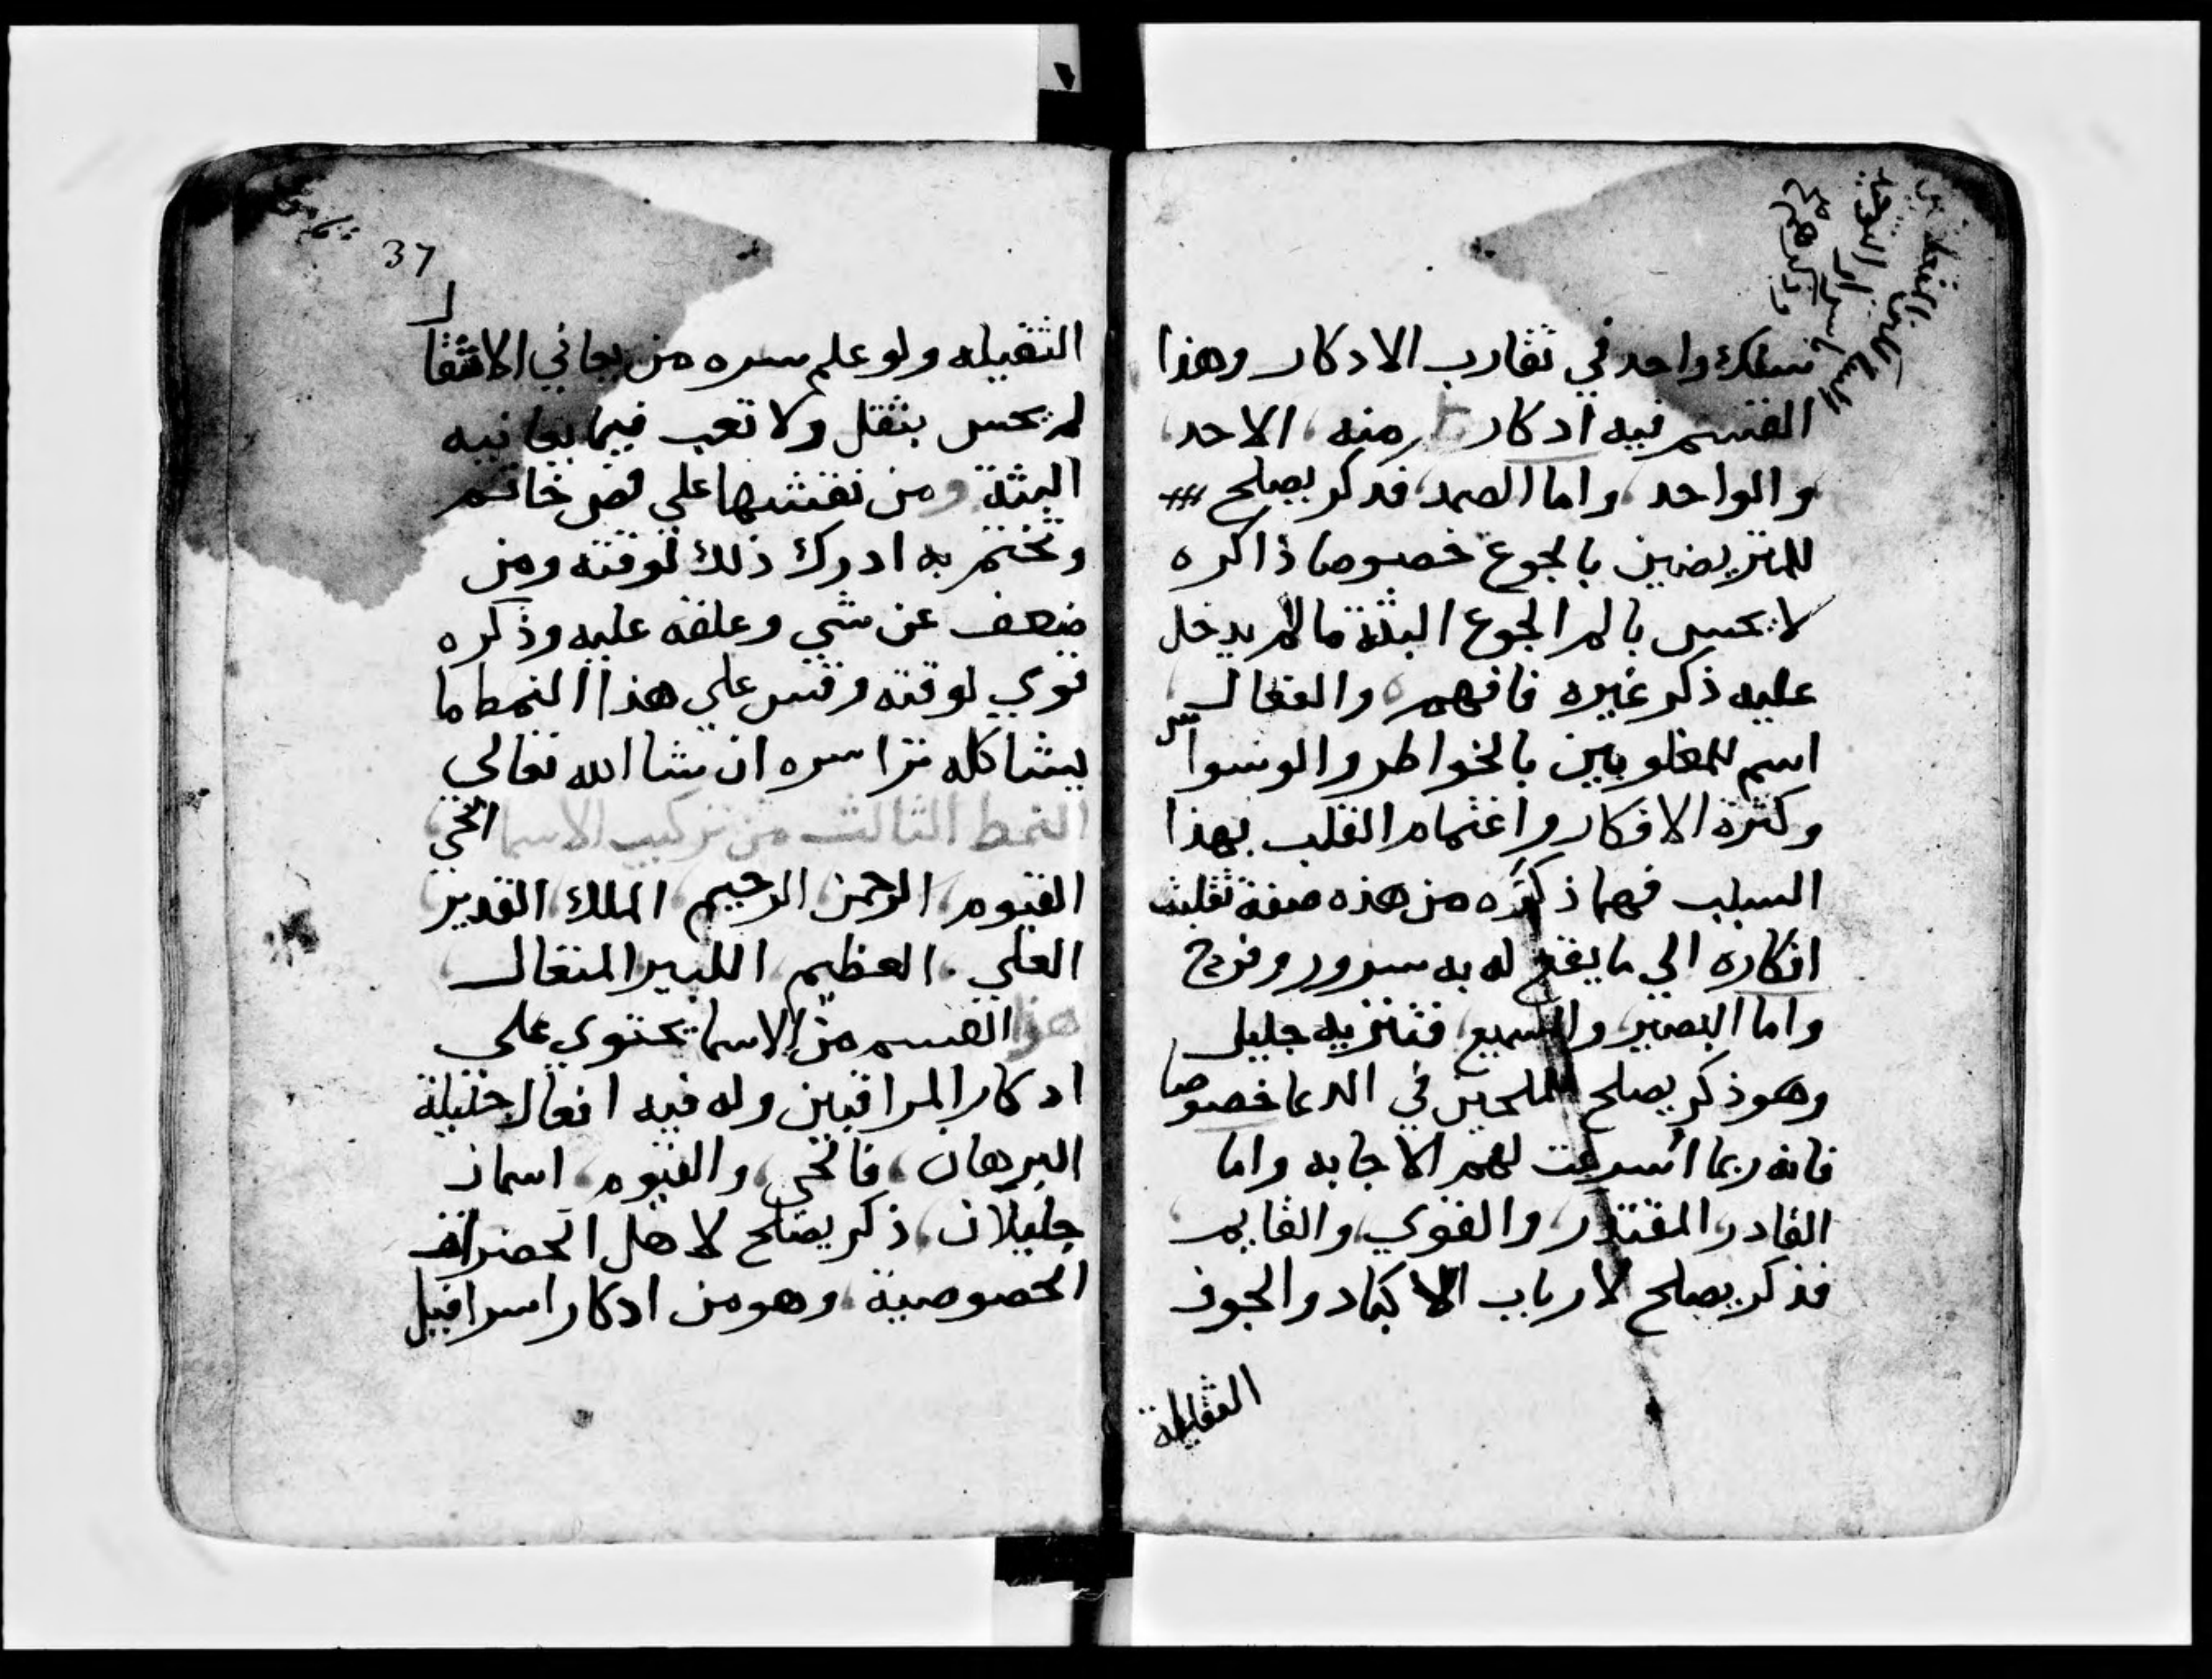 سلك واحد في تقارب الادكار وهذا
القسم فيه ادكار منه الاحد
والواحد واما الصمد فدكر يصلح
للمتريضين بالجوع خصوصا ذاكره
لا يحس بالم الجوع البتة ما لم يدخل
عليه ذكر غيره فافهم والفعال
اسم للمغلوبين بالخواطر والوسواس
وكثرة الافكار واغتمام القلب بهذا
السبب فهما ذكره من هذه صفة تقلبت
افكاره الي ما يقع له به سرور وفرح
واما البصير والسميع فتنزيه جليل
وهو ذكر يصلح للملحين في الدعا خصوصا
فانه ربما اسرعت لهم الاجابه واما
القادر المقتدر والقوي والقايم
فذكر يصلح لارباب الاكباد والجوف
الثقيلة
37
الثقيله ولو علم سره من يعاني الاثقال
لم يحس بثقل ولا تعب فيما يعانيه
البتة ومن نقشها علي فص خاتم
وتختم به ادرك ذلك لوقته ومن
ضعف عن شي وعلقه عليه وذكره
قوي لوقته وقس علي هذا النمط ما
يشاكله ترا سره ان شا الله تعالي
النمط الثالث من تركيب الاسما الحي
القيوم الرحمن الرحيم الملك القدير
العلي العظيم الكبير المتعال
هذا القسم من الاسما يحتوي علي
ادكار المراقبين وله فيه افعال جليلة
البرهان فالحي والقيوم اسمان
جليلان ذكر يصلح لاهل الحضرات
الخصوصية وهو من ادكار اسرافيل